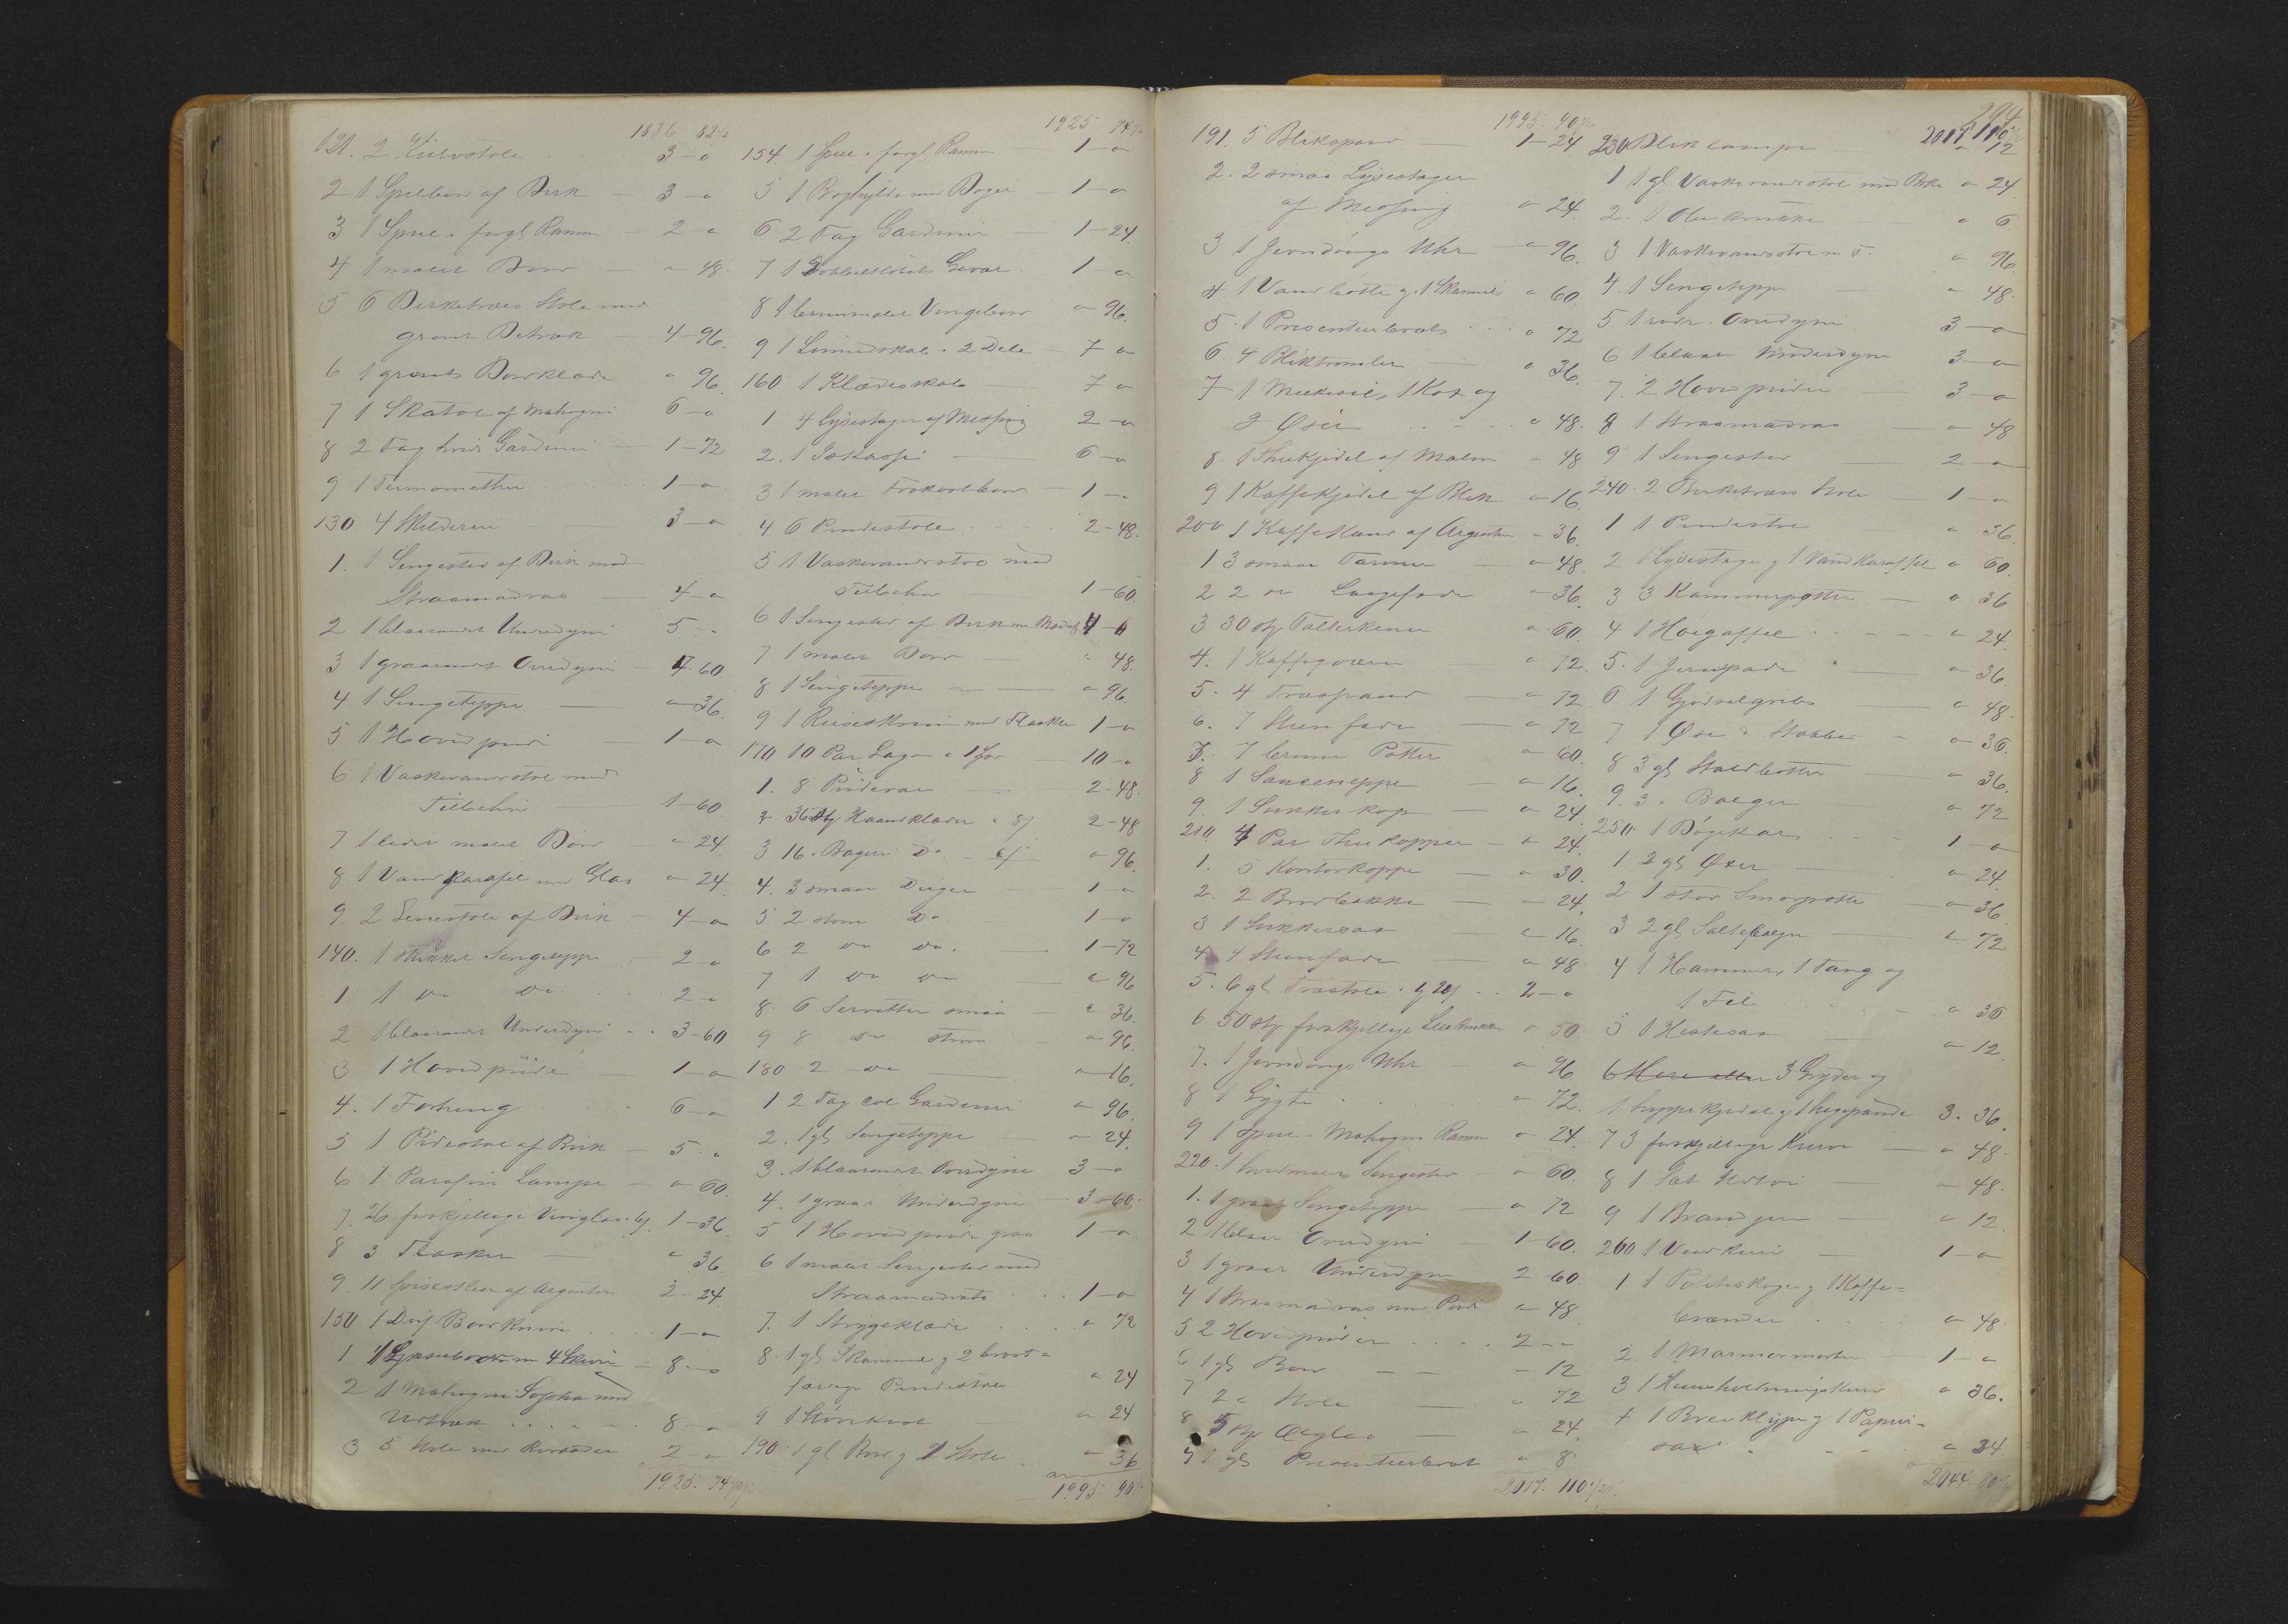 1836 82½
121. 2 Kurvstole 3 - "
2 1 Spillebord af Birk - 3 - "
3 1 Speil i forgl Ramme - 2 - "
4 1 malet Bord - " 48.
5 6 Birketræes Stole med
grønt Betræk - 4 - 96.
6 1 grønt Bordklæde " 96.
7 1 Skatol af Mahogni 6 - "
8 2 Fag hvide Gardiner - 1 - 72
9 1 Termomether 1 - "
130. 4 Skilderier 3 - "
1. 1 Sengested af Birk med
Straamadras - 4 - "
2 1 blaarandet Underdyne 5 - "
3 1 graarandet Overdyne - 4 - 60
4 1 Sengeteppe - " 36.
5 1 Hovedpude - 1 - "
6 1 Vaskevandsstol med
Tilbehør - 1 - 60
7 1 lidet malet Bord - " 24
8 1 Vandkaraffel med Glas " 24.
9. 2 Lænestole af Birk - 4 - "
140. 1 strikket Sengeteppe - 2 - "
1 1 do do 2 - "
2 1 blaarandet Underdyne 3 - 60
3 1 Hovedpude - 1 - "
4. 1 Forheng 6 - "
5 1 Pidestal af Birk - 5 - "
6 1 Parafin Lampe - " 60.
7. 26 forskjellige Vinglas 6/ 1 - 36
8 3 Flasker - " 36.
9. 11 Spiseskeer af Argentan 2 - 24
150 1 Dus Bordknive 1 - "
1 1 Spisebord m 4 Skiver - 8 - "
2 1 Mahogni Sopha med
Uldtræk 8 - "
3 5 Stole med Rørsæder 2 - "
1925. 74½
1925 74½
154. 1 Speil i forgl Ramme - 1 - "
5 1 Boghylde med Bøger - 1 - "
6 2 Fag Gardiner - 1 - 24.
7 1 Dobbeltløbet Gevær 1 - "
8 1 brunmalet Vingebord " 96.
9 1 Linnedskab i 2 Dele - 7 "
160 1 Klædesskab - 7 "
1 4 Lysestager af Messing 2 - "
2. 1 Iskasse - 6 - "
3 1 malet Frokostbord - 1 - "
4 6 Pindestole 2 - 48.
5 1 Vaskevandsstol med
Tilbehør 1 - 60
6 1 Sengested af Birk m Madras 4 - "
7 1 malet Bord - " 48.
8 1 Sengeteppe - " 96.
9 1 Reiseskrin med Flasker 1 - "
170 10 Par Lagen a 1 Spd 10 - "
1. 8 Pudevar - 2 - 48.
2. 36 Stk Haandklæder a 8/ 2 - 48
3 16 Bageri Do - 6/ " 96.
4. 3 smaa Duger - 1 - "
5 2 store Do 1 - "
6 2 do do. - 1 - 72
7 1 do do " 96
8. 6 Servietter smaa - " 36.
9 8 do store " 96.
180 2 do - " 16.
1 2 Fag Gardiner " 96.
2. 1 gl Sengeteppe - " 24.
3. 1 blaarandet Overdyne 3 - "
4. 1 graa Underdyne - 3 - 60.
5 1 Hovedpude graa 1 - "
6 1 malet Sengested med
Straamadrats 1 - "
7. 1 Strygeklæde " 72
8. 1 gl Skammel og 2 brøst-
fældige Pindestole " 24
9 1 Skrivepult " 24
190 1 gl Bord og 2 Stole " 36
1995. 90½
294.
1995. 90½
191. 5 Blikspand - 1 - 24
2. 2 smaa Lysestager
af Messing " 24.
3 1 Jerndøngs Uhr - " 96.
4. 1 Vandbøtte og 1 Skammel " 60
5. 1 Presenteerbrett " 72
6. 4 Bliktromler - " 36.
7 1 Melkesil, 1 Kos og
2 Øser " 48.
8. 1 Theekjedel af Malm " 48
9 1 Kaffekjedel af Blik " 16
200 1 Kaffekande af Argentan " 36.
1 3 smaa Tariner " 48.
2 2 do Laagefade " 36.
3 30 stk Tallerkener " 60.
4. 1 Kaffeqværn " 72.
5. 4 Træspand - " 72.
6. 7 Steenfade - " 72
7. 7 brune Potter " 60.
8 1 Sauceneppe - " 16.
9. 1 Sukkerkop - " 24.
210 4 Par Theekopper - " 24.
1. 5 Kontorkopper - " 30.
2. 2 Brødbakke - " 24.
3 1 Sukkersax " 16.
4 4 Steenfade - " 48.
5. 6 gl Træstole 2 - "
6 50 stk forskjellige Leerkrukker " 50
7. 1 Jerndøngs Uhr - " 96
8 1 Lygte " 72.
9 1 Speil i Mahogni Ramme " 24.
220. 1 hvidmalet Sengested " 60.
1. 1 graat Sengeteppe - " 72
2 1 blaa Overdyne 1 - 60.
3 1 graa Underdyne 2 - 60
4 1 Straamadras med Pude " 48
5 2 Hovedpuder 2 - "
6 1 gl Bord - " 12
7 2 " Stole " 72
8 5 stk Ølglas " 24.
9 1 gl Presenteerbret " 8
2017. 110½
2017 110½
230 Bliklampe " 12
1 1 gl Vaskevandsstol med Bakke " 24
2. 1 Ølkrukke " 6
3 1 Vaskevandsstol m F. " 96
4. 1 Sengeteppe - " 48.
5 1 rødr. Overdyne 3 - "
6 1 blaar Underdyne 3 - "
7. 2 Hovedpuder - 3 - "
8 1 Straamadras - " 48
9 1 Sengested - 2 - "
240. 2 Birketræes Stole - 1 - "
1 1 Pindestol " 36.
2 1 Lysestage og 1 Vandkaraffel " 60.
3 3 Kammerpotter - " 36
4 1 Høegaffel " 24.
5. 1 Jernspade - " 36.
6. 1 Gjødselgreb - " 48.
7 1 Øse " 36.
8 3 gl Staldbøtter - " 36.
9. 3 " Balger " 72
250 1 Bøgekar 1 - "
1 2 gl Øxer - " 24.
2 1 stor Smørpotte " 36
3 2 gl Saltebalger - " 72
4 1 Hammer, 1 Tang og
1 Fil " 36
5 1 Hestesax - " 12.
6 3 Gryder og
1 Suppekjedel og 1 Steegepande 3. 36.
7 3 forskjellige Kurve - " 48.
8 1 Sæt - " 48.
9 1 Brandjern " 12.
260 1 Vedkurv - 1 - "
1 1 Potetskoger og 1 Kaffe=
brænder " 48
2 1 Marmormorter - 1 - "
3 1 Huusholdningskurv " 36.
4 1 Brevklype og 1 Papir=
sax " 24.
2044. 80½